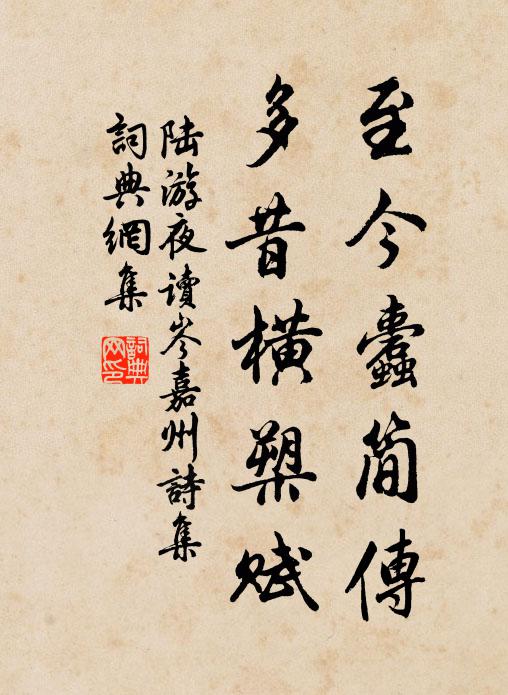 至今蠹簡傳
多昔橫槊賦
陸游夜讀岑嘉州詩集
詞典網集
詞典网印